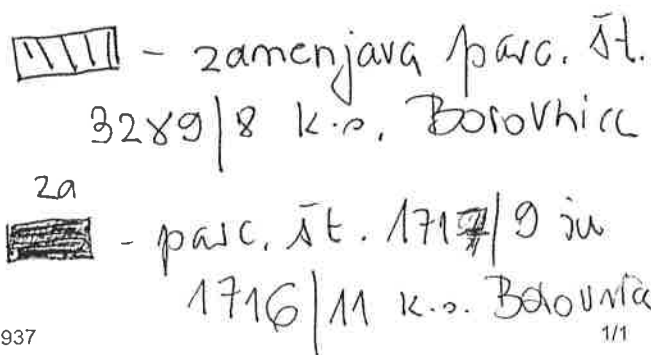 - zamenjava parc. št.
3289/8 k.o. Borovnica
za
- parc. št. 1717/9 in
1716/11 k.o. Borovnica
937
1/1